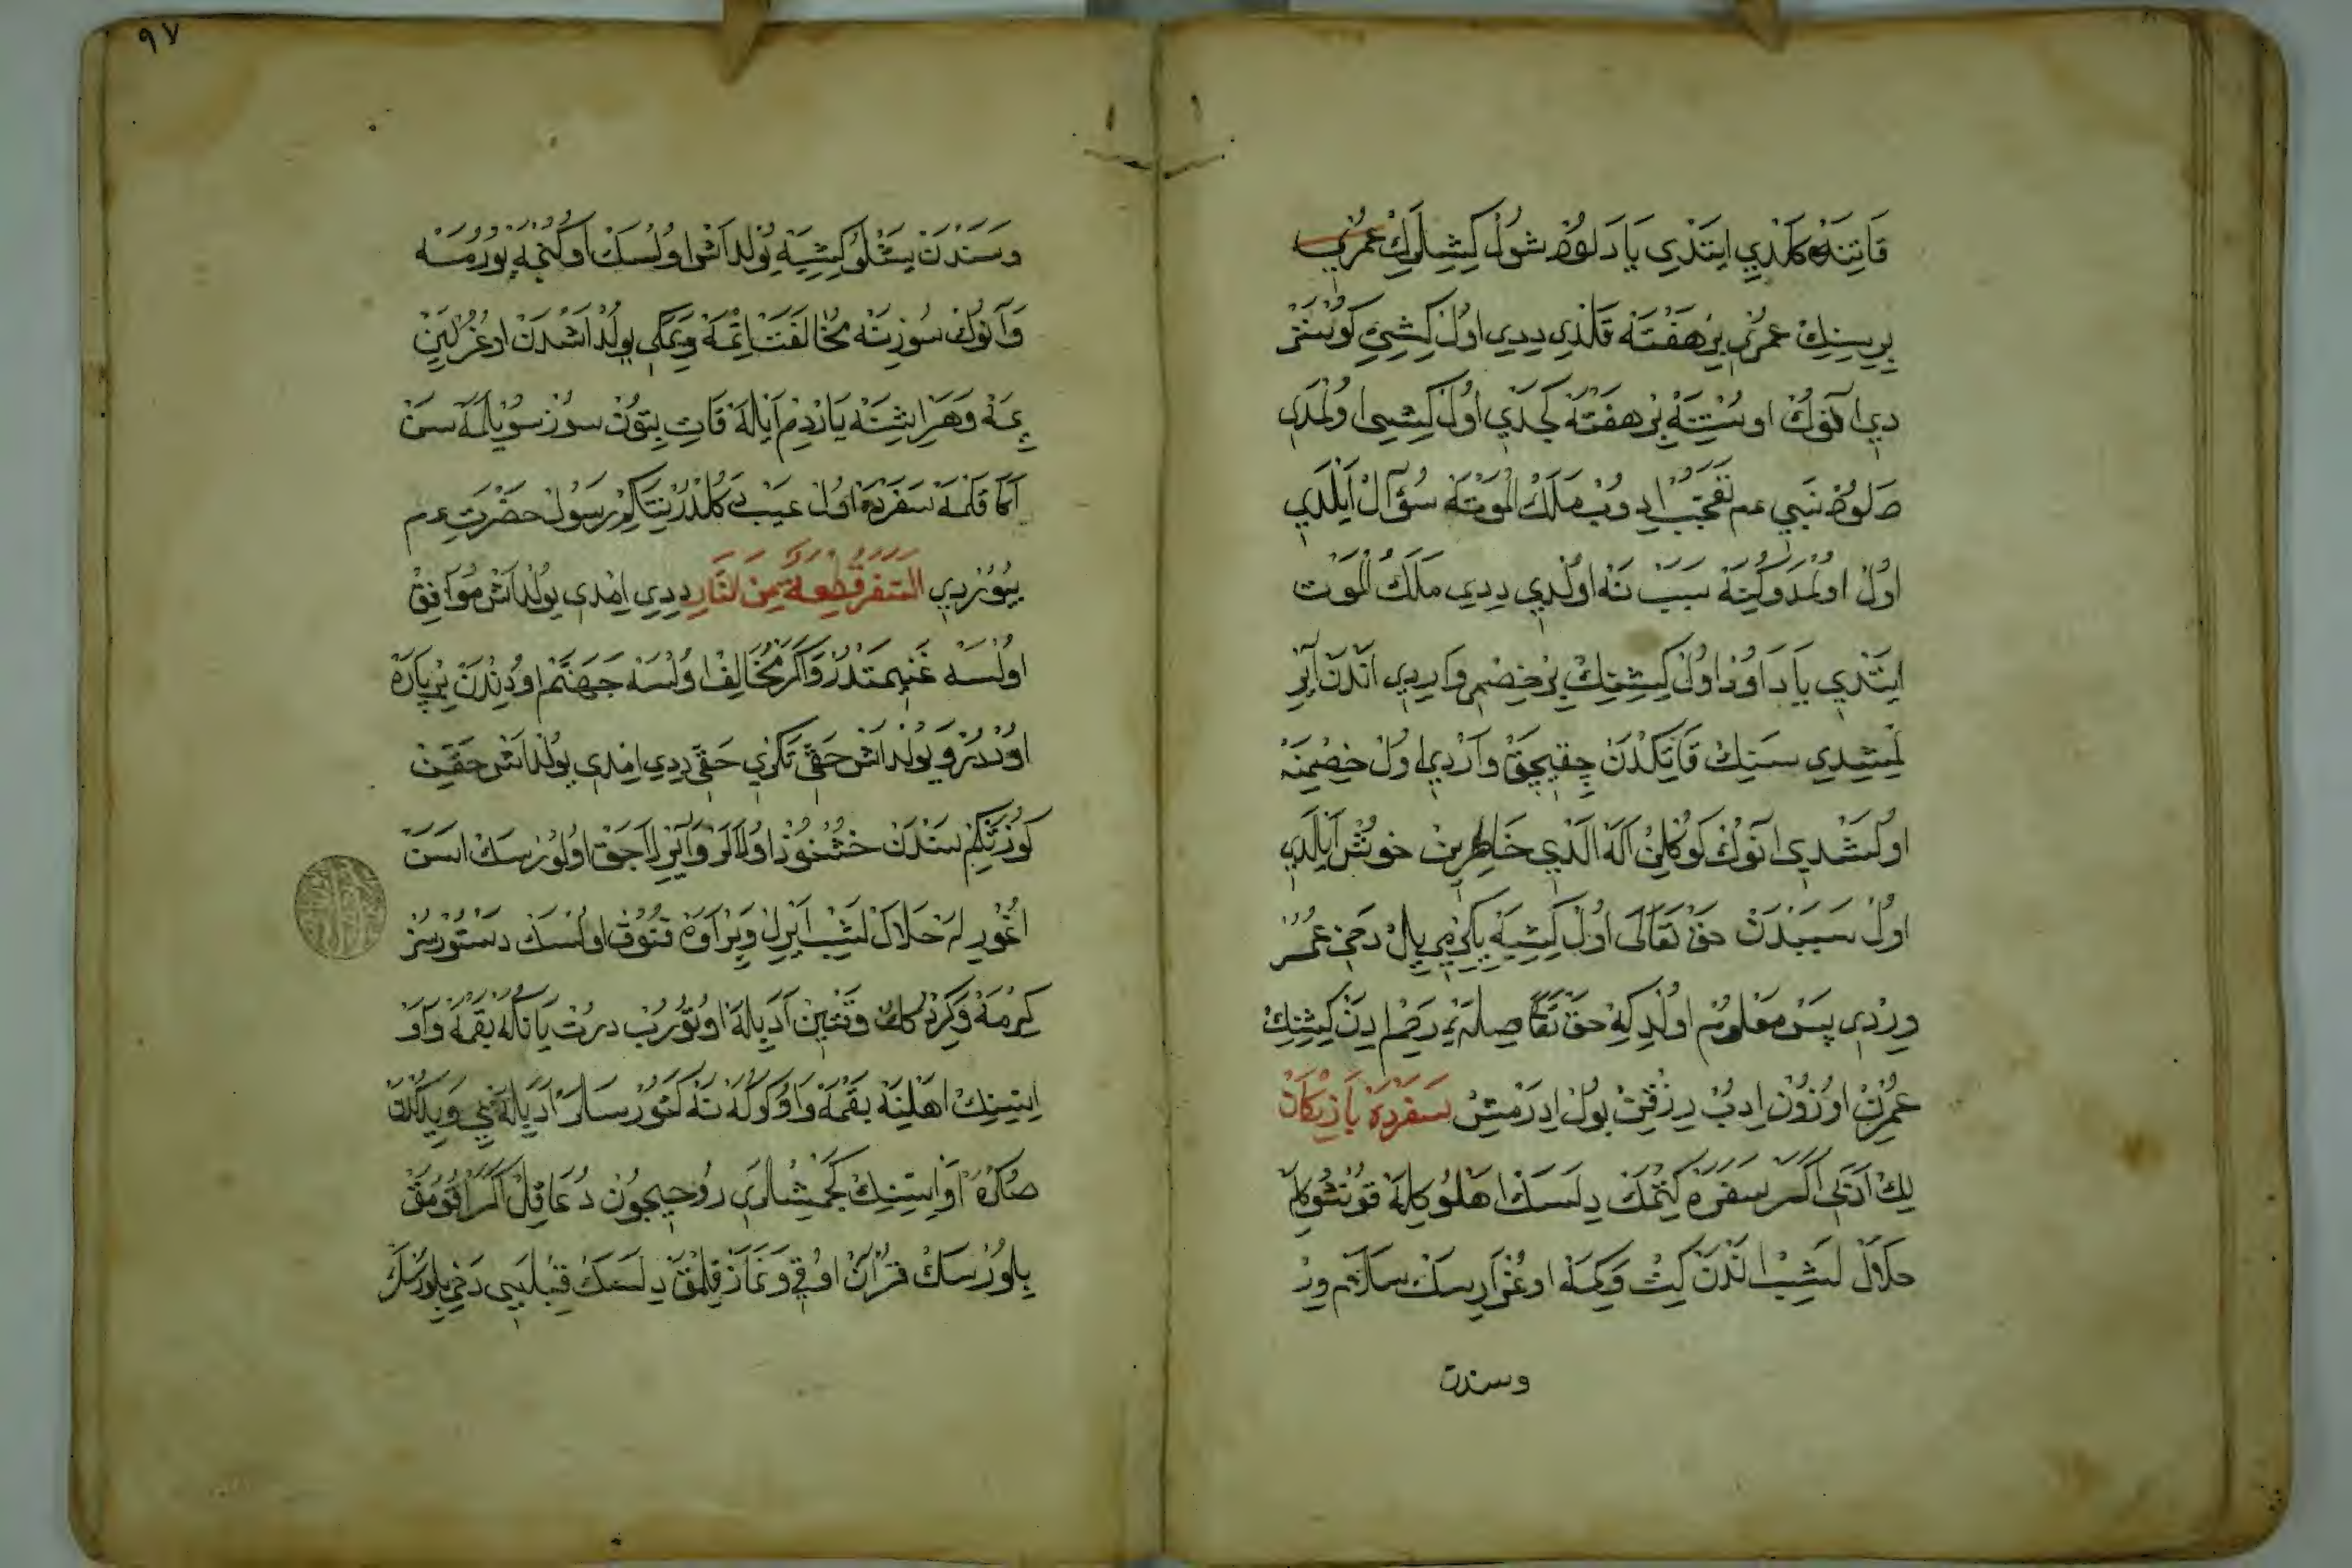 قَاتِنَهْ كَلْدِي اَيتْدِي يَا دَاوُدْ شُولْ كِشِيلَرِكْ عُمْرُنِي
بِرِيسِنِكْ عُمْرِي بِرْ هَفْتَهْ قَلْدِي دِدِي اول كِشِيِ كَوسْتَرْ
دِي اَنُوكْ اوسْتِنَهْ بِرْ هَفْتَهْ كَجْدِي اول كِشِي اولمَدِي
دَاوُدْ نَبِي عم تَعَجُّبْ ادوبْ مَلَكُ الْمَوْتَهْ سُؤَالْ اَيْلَدِي
اول اولمَدوكِنَهْ سَبَبْ نَهْ اولدِي دِدِي مَلَكُ الْمَوْت
اَيِتْدِي يَا دَاوُدْ اول كِشِينِكْ بِرْ خِصْمِي وَارِدِي اَنْدَنْ اَيْرِ
لْمِشِدِي سَنِكْ قَاتِكْدَنْ چِقِيجَقْ وَارْدِي اول خِصْمِنَهْ
اولَشْدِي اَنُوكْ كُوكْلِنْ اَلَهْ اَلْدِي خَاطِرِينْ خُوشْ اَيْلَدِي
اول سَبَبْدَنْ حَقْ تَعَالَى اول كِشِيَهْ يِكِرْمِي يِلْ دَخِي عُمُرْ
وِرْدِي پَسْ مَعْلُومْ اولْدِ كِهْ حَقْ تَعَالَى صِلَهْ رَحِمْ ادَنْ كِشِنِكْ
عُمْرِنْ اوزُونْ ادُبْ رِزْقِنْ بُولْ ادَرْمِشْ سَفَرْدَهْ يَازِيكَانْ
لِكْ اَدَبِي اَكَرْ سَفَرَهْ كِتْمَكْ دِلَسَكْ اهْلُوكِلَهْ قُونْشُوكْلَهْ
حَلَالْ لَشِبْ اَنْدَنْ كِتْ وَكِمَهْ اوغْرَارسَكْ سَلَامْ وِرْ
وسندن
٩٧
وَسَنْدَنْ يَشْلُو كِشِيَهْ يُولْدَاشْ اولسَكْ اوكِنْجَهْ يورُمَهْ
وَاَنُوكْ سُوزِنَهْ مُخَالَفَتْ اِتْمَهْ وَيَمَكِي يولْدَاشْدَنْ اوغْرُلَيِنْ
يِمَهْ وَهَرْ ايشِنَهْ يَارْدِمْ اَيْلَهْ قَاتِ بِتونْ سُوزْ سُويْلَمَهْ سَنْ
اَكَا قَقِمَهْ سَفَرْدَهْ اول عَيْبْ دَكُلْدُرْ نِتَاكِمْ رَسُولْ حَضْرَتِ عم
بيُورْدِي السَّفَرُ قِطْعَةٌ مِنَ النَّارِ دِدِي امْدِي يُولْدَاشْ مُوَافِقْ
اولْسَهْ غَنِيمَتْدُرْ وَاكَرْ مُخَالِفْ اولْسَهْ جَهَنَّمْ اودِنْدَنْ بِرْ پَارَهْ
اودْدُرْ وَيُولْدَاشْ حَقِّي تَكْرِي حَقِّي دِدِي امْدِي يُولْدَاشْ حَقِّنْ
كوزَتْكِمْ سَنْدَنْ خُشْنُودْ اولَلَرْ وَاَيْرِلَاجَقْ اولُورْسَكْ اسَنْ
حَلَالْ لَشِبْ اَيْرِلْ وَبِرْ اَوَهْ قُنُوقْ اولْسَكْ دَسْتُورْسُزْ
كِيرْمَهْ وَكِرْدُكِكْ وَقْتِينْ اَدَبِلَهْ اوتُورُبْ دُرْتْ يَانَكَهْ بَقْمَهْ وَاَوْ
ايسِنِكْ اَهْلِنَهْ بَقْمَهْ وَاوكُكَهْ نَهْ كَتُورْسَلَرْ اَدَبِلَهْ يِ وَيِدِكْدَنْ
صُكْرَهْ اَوْ ايسِنِكْ كَچْمِشْلَرِي رُوحِيچُونْ دُعَا قِلْ اَكَرْ اقُومَقْ
بِلُورْسَكْ قُرْآنْ اوقِي وَنَمَازْ قِلْمَقْ دِلَسَكْ قِبْلَيِي دَخِي بِلُورْسَكْ